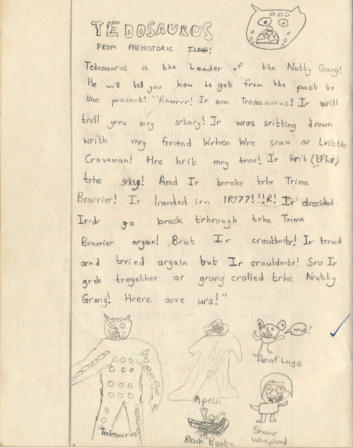 TEDOSAURUS
FROM PREHISTORIC TIME!
Tedosaurus is the Leader of the Nutty Gang!
He will tell you how he got from the past to
the present! "Rowrrr! Ir arm Tredosaurus! Ir wrill
trell yrou mry srtory! Ir wras sritting drown
writh mry frriend Wrhen Wre sraw ar Lrittle
Craveman! Hre hrit mry troe! Ir hrit
trhe srky! Arnd Ir brroke trhe Trime
Brarrier! Ir lranded irn 1R977! !R! Ir drecided
Irtdr go brack trhrough trhe Trime
Brarrier argain! Brut Ir crouldntr! Ir trried
arnd trried argain brut Ir crouldntr! Sro Ir
grot trogether ar grang cralled trhe Nrutty
Grang! Hrere arre urs!"
me!
Deaf Lugs
Apeth
Tedosaurus
Black Boots
Shane Whispland